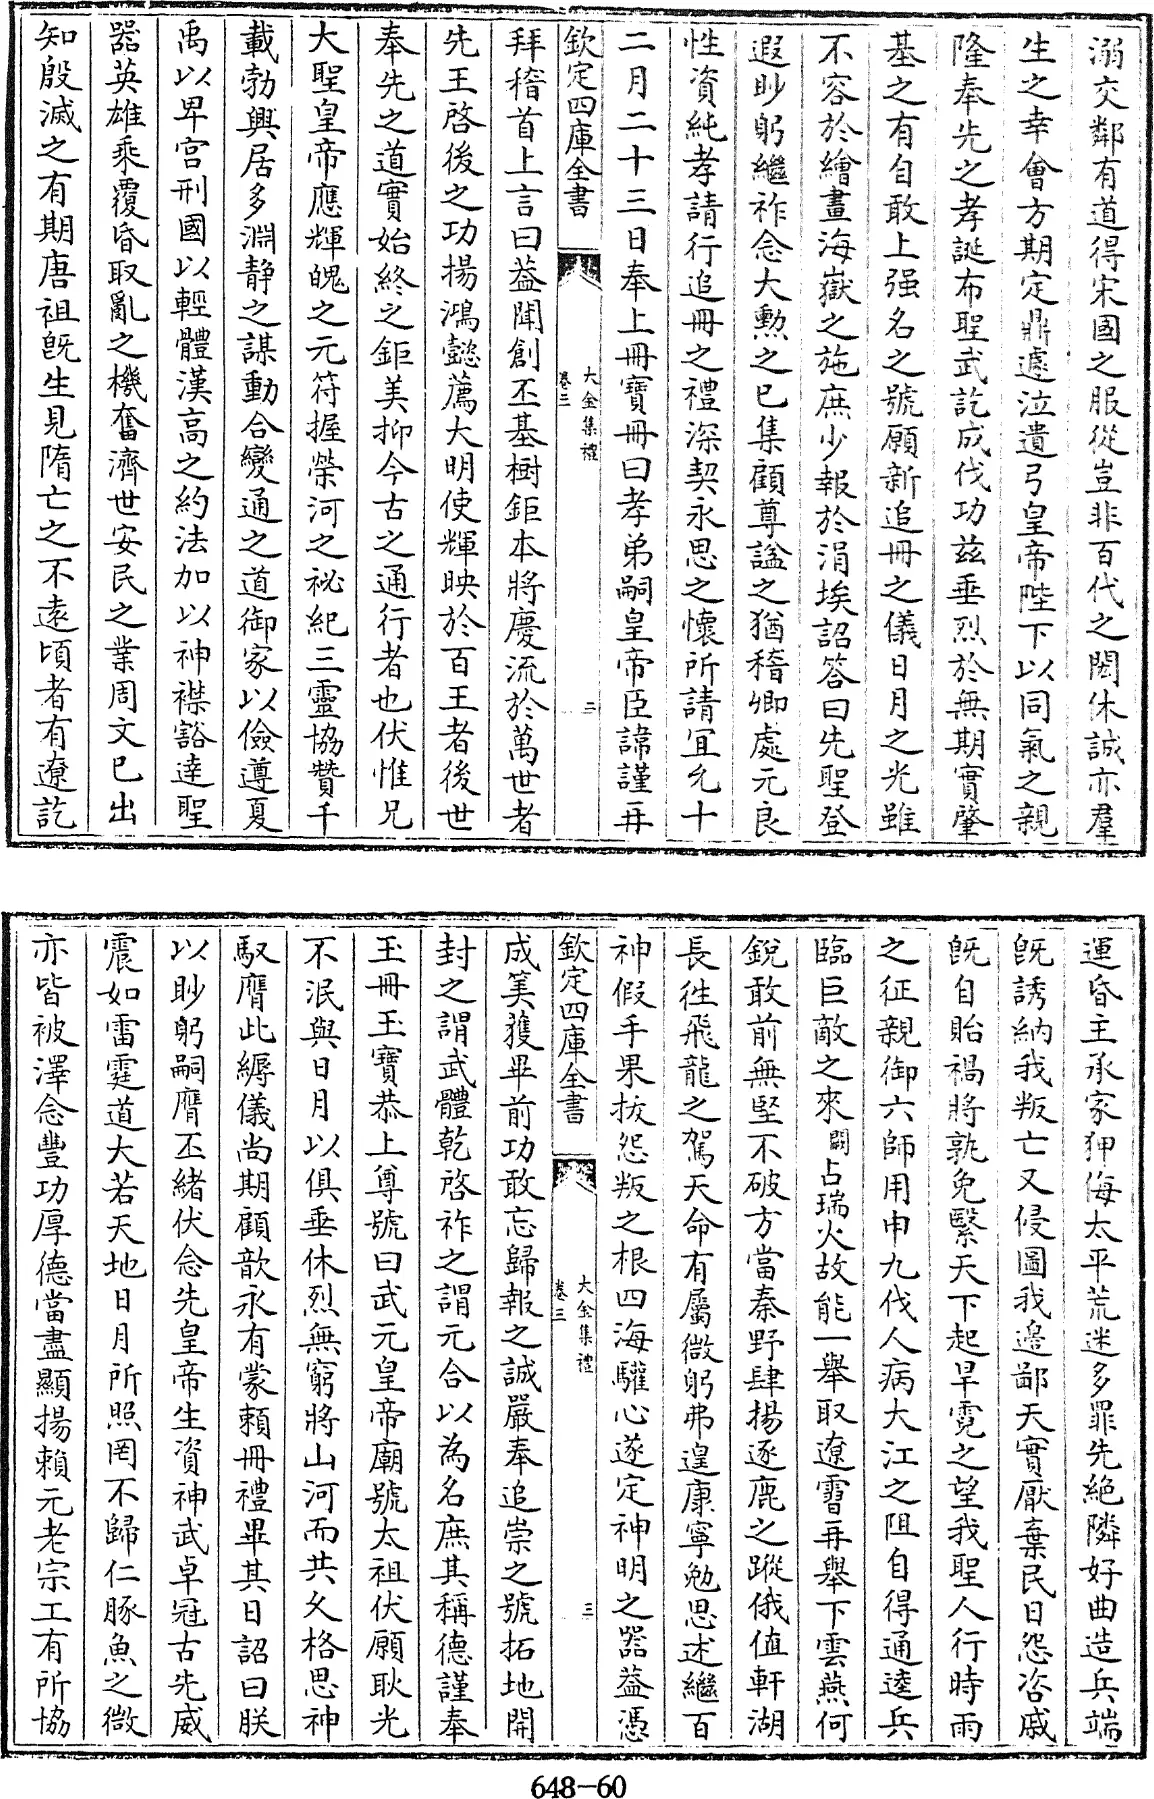 溺交鄰有道得宋國之服從豈非百代之閎休誠亦羣
生之幸會方期定鼎遽泣遺弓皇帝陛下以同氣之親
隆奉先之孝誕布聖武訖成伐功兹垂烈於無期實肇
基之有自敢上强名之號願新追冊之儀日月之光雖
不容於繪畫海嶽之施庶少報於涓埃詔答曰先聖登
遐眇躬繼祚念大勲之已集顧尊謚之猶稽卿處元良
性資純孝請行追冊之禮深契永思之懷所請宜允十
二月二十三日奉上冊寶冊曰孝弟嗣皇帝臣諱謹再
欽定四庫全書
大金集禮
卷三
三
拜稽首上言曰葢聞創丕基樹鉅本將慶流於萬世者
先王啓後之功揚鴻懿薦大明使輝映於百王者後世
奉先之道實始終之鉅美抑今古之通行者也伏惟兄
大聖皇帝應輝魄之元符握榮河之祕紀三靈協贊千
載勃興居多淵静之謀動合變通之道御家以儉遵夏
禹以卑宫刑國以輕體漢高之約法加以神襟豁達聖
器英雄乘覆昏取亂之機奮濟世安民之業周文已出
知殷滅之有期唐祖旣生見隋亡之不逺頃者有遼訖
運昏主承家狎侮太平荒迷多罪先絶隣好曲造兵端
旣誘納我叛亡又侵圖我邉鄙天實厭棄民日怨咨戚
旣自貽禍將孰免繄天下起旱霓之望我聖人行時雨
之征親御六師用申九伐人病大江之阻自得通逵兵
臨巨敵之來闕占瑞火故能一舉取遼霫再舉下雲燕何
鋭敢前無堅不破方當秦野肆揚逐鹿之蹤俄值軒湖
長徃飛龍之駕天命有屬微躬弗遑康寧勉思述繼百
神假手果抜怨叛之根四海驩心遂定神明之器葢憑
欽定四庫全書
大金集禮
卷三
三
成筭獲畢前功敢忘歸報之誠嚴奉追崇之號拓地開
封之謂武體乾啓祚之謂元合以為名庶其稱德謹奉
玉冊玉寶恭上尊號曰武元皇帝廟號太祖伏願耿光
不泯與日月以俱垂休烈無窮將山河而共久格思神
馭膺此縟儀尚期顧歆永有蒙頼冊禮畢其日詔曰朕
以眇躬嗣膺丕緒伏念先皇帝生資神武卓冠古先威
震如雷霆道大若天地日月所照罔不歸仁豚魚之微
亦皆被澤念豐功厚德當盡顯揚頼元老宗工有所協
648-60